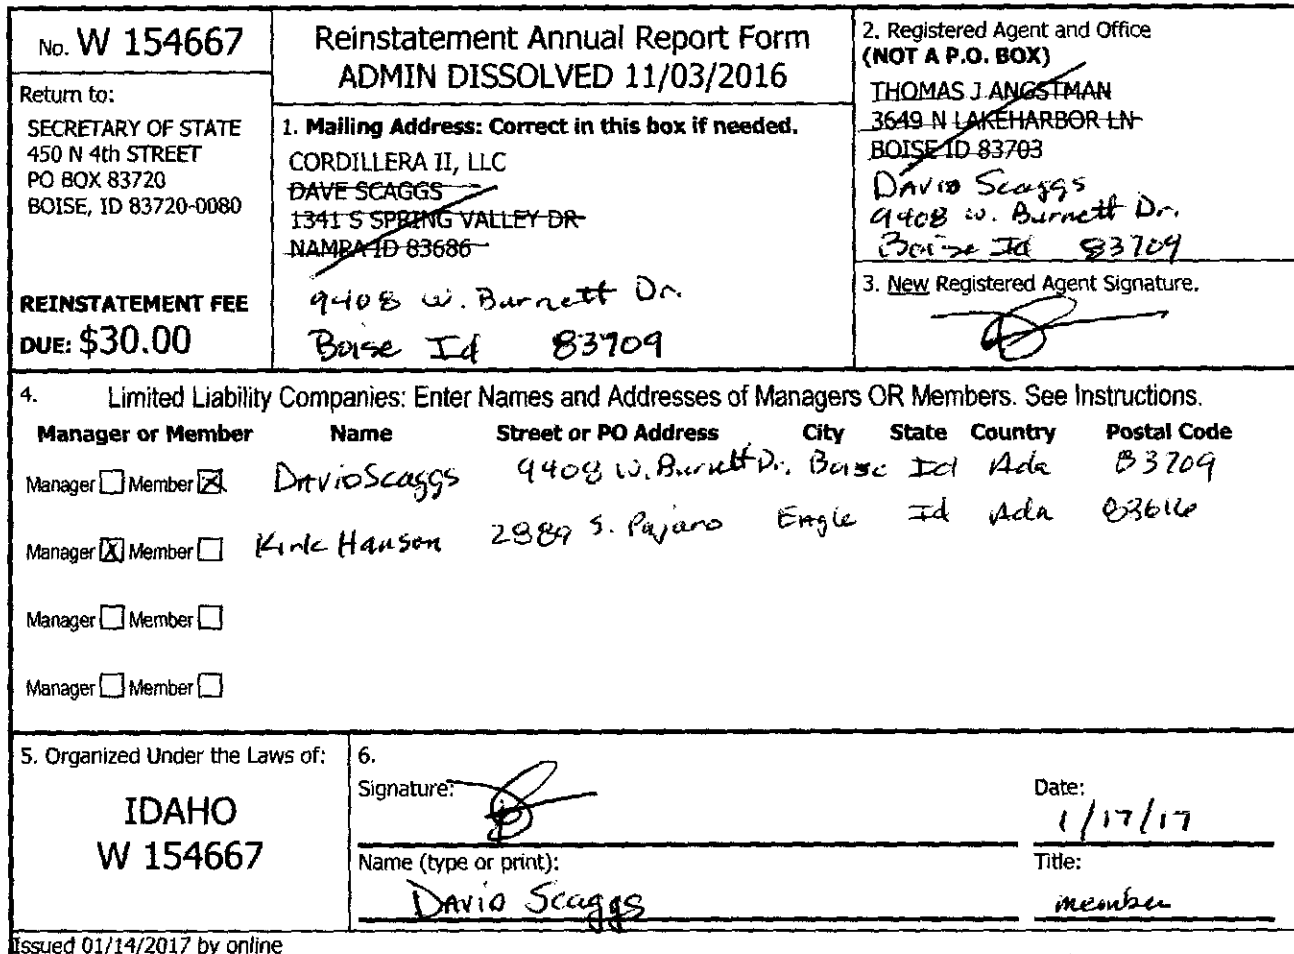 No. W 154667
Return to:
SECRETARY OF STATE
450 N 4th STREET
PO BOX 83720
BOISE, ID 83720-0080
REINSTATEMENT FEE
DUE: $30.00
Reinstatement Annual Report Form
ADMIN DISSOLVED 11/03/2016
1. Mailing Address: Correct in this box if needed.
CORDILLERA II, LLC
DAVE SCAGGS
1341 S SPRING VALLEY DR
NAMPA ID 83686
9408 W. Burnett Dr.
Boise Id 83709
2. Registered Agent and Office
(NOT A P.O. BOX)
THOMAS J ANGSTMAN
3649 N LAKEHARBOR LN
BOISE ID 83703
David Scaggs
9408 W. Burnett Dr.
Boise Id 83709
3. New Registered Agent Signature.
4. Limited Liability Companies: Enter Names and Addresses of Managers OR Members. See Instructions.
Manager or Member Name Street or PO Address City State Country Postal Code
Manager Member David Scaggs 9408 W. Burnett Dr. Boise Id Ada 83709
Manager Member Kirk Hanson 2889 S. Pajaro Eagle Id Ada 83616
Manager Member
Manager Member
5. Organized Under the Laws of:
IDAHO
W 154667
6.
Signature:
Date:
1/17/17
Name (type or print):
David Scaggs
Title:
member
Issued 01/14/2017 by online